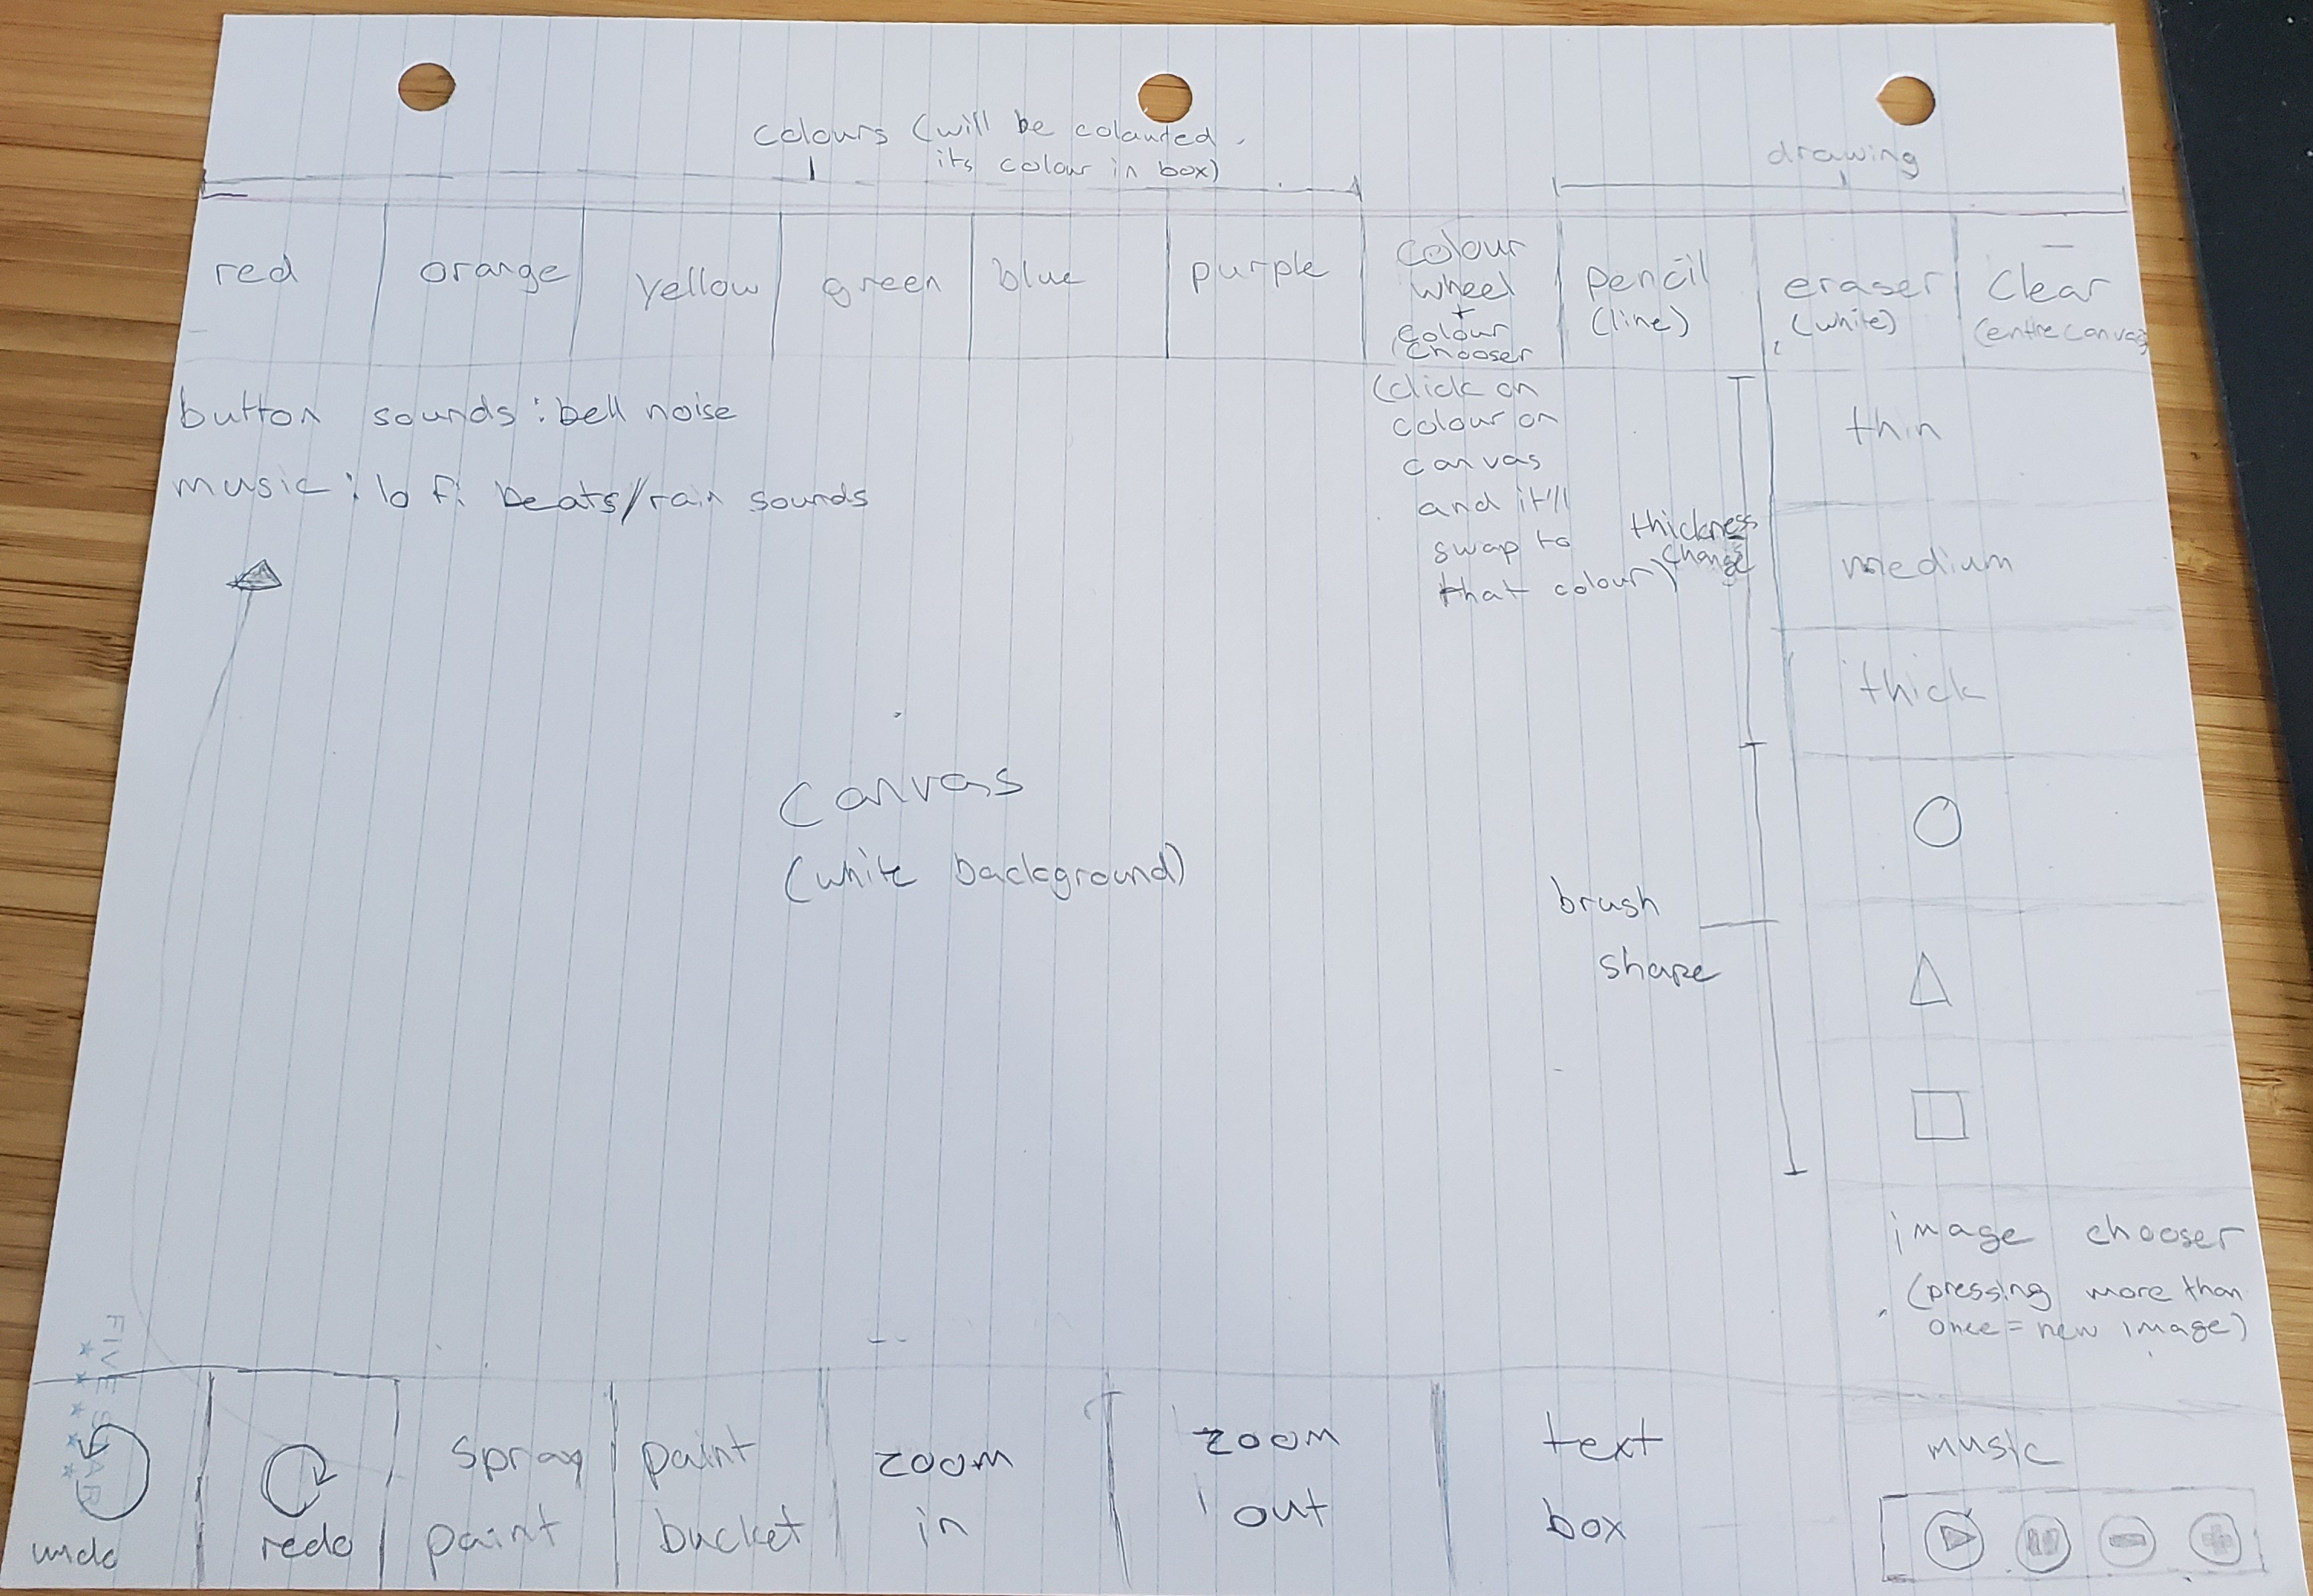 colours (will be colauted
its colour in box)
drawing
red
orange
yellow
green
blue
purple
colour
wheel
+
colour
chooser
pencil
(line)
eraser
(white)
clear
(entire canvas)
button sounds: bell noise
music: lo fi beats/rain sounds
(click on
colour on
canvas
and it'll
swap to
that colour)
thickness
change
thin
medium
thick
canvas
(white background)
brush
shape
image chooser
(pressing more than
once = new image)
FIVE STAR
undo
redo
spray
paint
paint
bucket
zoom
in
zoom
out
text
box
music